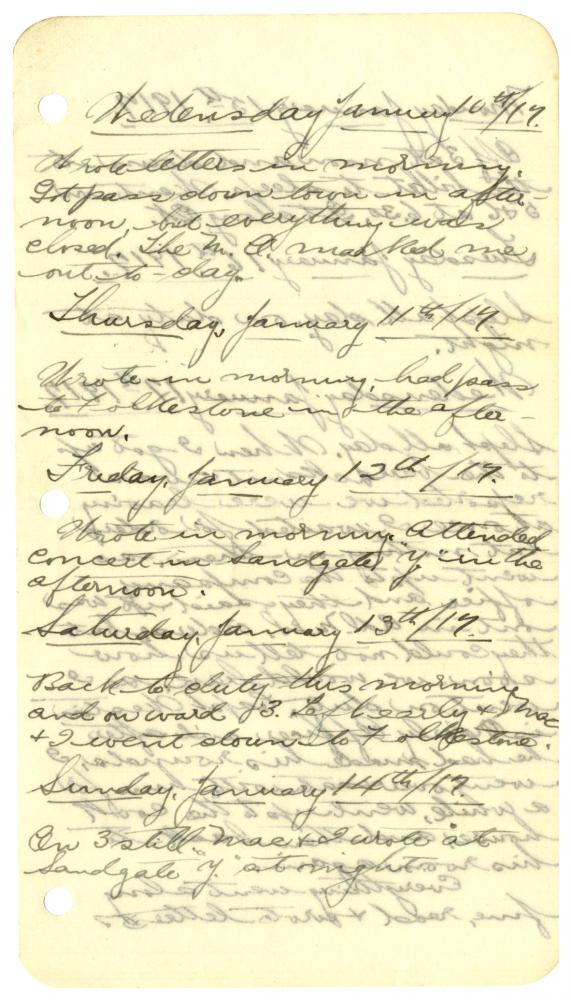 Wedensday January 10th/17.
Wrote letters in morning.
Got pass down town in after-
noon, but everything was
closed. The M.O. marked me
out to-day.
Thursday, January 11th/17.
Wrote in morning, had pass
to Folkestone in the after-
noon.
Friday, January 12th/17.
Wrote in morning. Attended
concert in Sandgate "Y" in the
afternoon.
Saturday, January 13th/17.
Back to duty this morning
and on ward 3. Left early & Mac
& I went down to Folkestone.
Sunday, January 14th/17.
On 3 still. Mac & I wrote at
Sandgate "Y" at night.